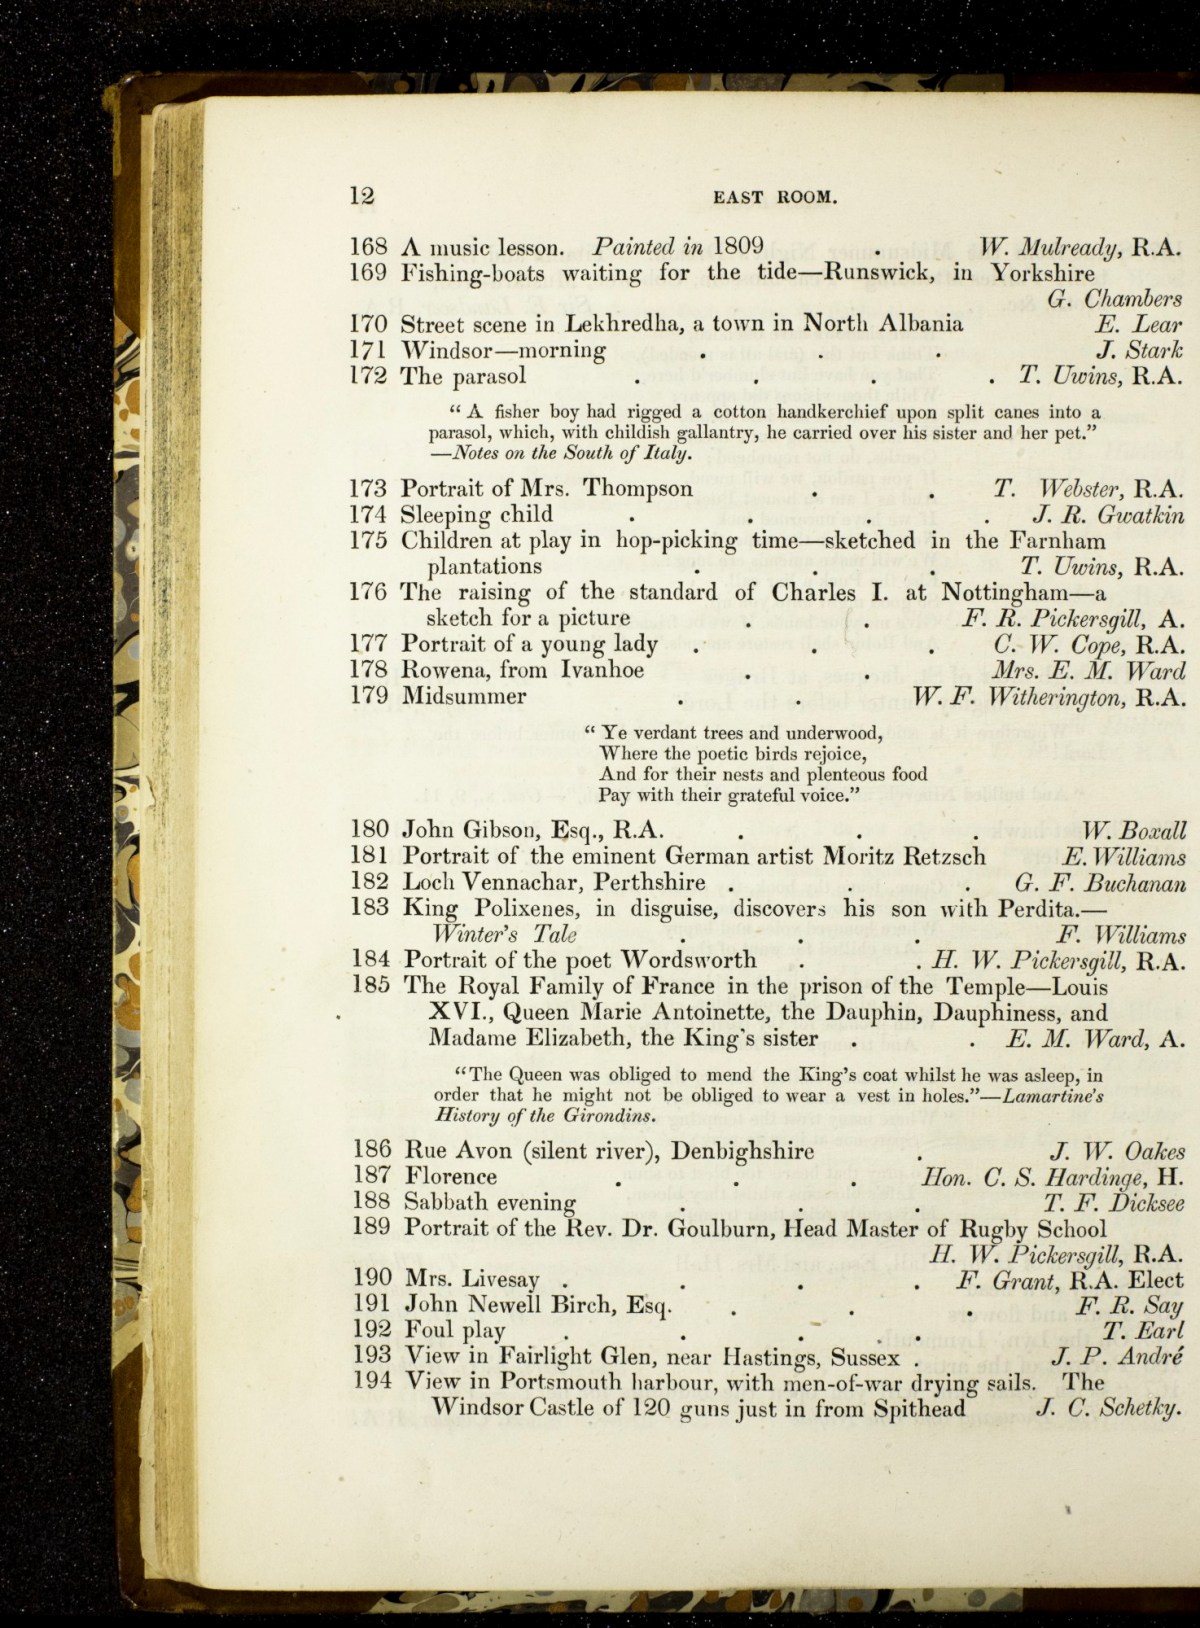 12 EAST ROOM.
168 A music lesson. Painted in 1809 . W. Mulready, R.A.
169 Fishing-boats waiting for the tide—Runswick, in Yorkshire
G. Chambers
170 Street scene in Lekhredha, a town in North Albania E. Lear
171 Windsor—morning . . . J. Stark
172 The parasol . . . . T. Uwins, R.A.
“A fisher boy had rigged a cotton handkerchief upon split canes into a
parasol, which, with childish gallantry, he carried over his sister and her pet.”
—Notes on the South of Italy.
173 Portrait of Mrs. Thompson . . T. Webster, R.A.
174 Sleeping child . . . . J. R. Gwatkin
175 Children at play in hop-picking time—sketched in the Farnham
plantations . . . T. Uwins, R.A.
176 The raising of the standard of Charles I. at Nottingham—a
sketch for a picture . . F. R. Pickersgill, A.
177 Portrait of a young lady . . . C. W. Cope, R.A.
178 Rowena, from Ivanhoe . . Mrs. E. M. Ward
179 Midsummer . . W. F. Witherington, R.A.
“Ye verdant trees and underwood,
Where the poetic birds rejoice,
And for their nests and plenteous food
Pay with their grateful voice.”
180 John Gibson, Esq., R.A. . . . W. Boxall
181 Portrait of the eminent German artist Moritz Retzsch E. Williams
182 Loch Vennachar, Perthshire . . . G. F. Buchanan
183 King Polixenes, in disguise, discovers his son with Perdita.—
Winter's Tale . . . F. Williams
184 Portrait of the poet Wordsworth . . H. W. Pickersgill, R.A.
185 The Royal Family of France in the prison of the Temple—Louis
XVI., Queen Marie Antoinette, the Dauphin, Dauphiness, and
Madame Elizabeth, the King's sister . . E. M. Ward, A.
“The Queen was obliged to mend the King's coat whilst he was asleep, in
order that he might not be obliged to wear a vest in holes.”—Lamartine's
History of the Girondins.
186 Rue Avon (silent river), Denbighshire . J. W. Oakes
187 Florence . . . Hon. C. S. Hardinge, H.
188 Sabbath evening . . . T. F. Dicksee
189 Portrait of the Rev. Dr. Goulburn, Head Master of Rugby School
H. W. Pickersgill, R.A.
190 Mrs. Livesay . . . . F. Grant, R.A. Elect
191 John Newell Birch, Esq. . . . F. R. Say
192 Foul play . . . . T. Earl
193 View in Fairlight Glen, near Hastings, Sussex . J. P. André
194 View in Portsmouth harbour, with men-of-war drying sails. The
Windsor Castle of 120 guns just in from Spithead J. C. Schetky.